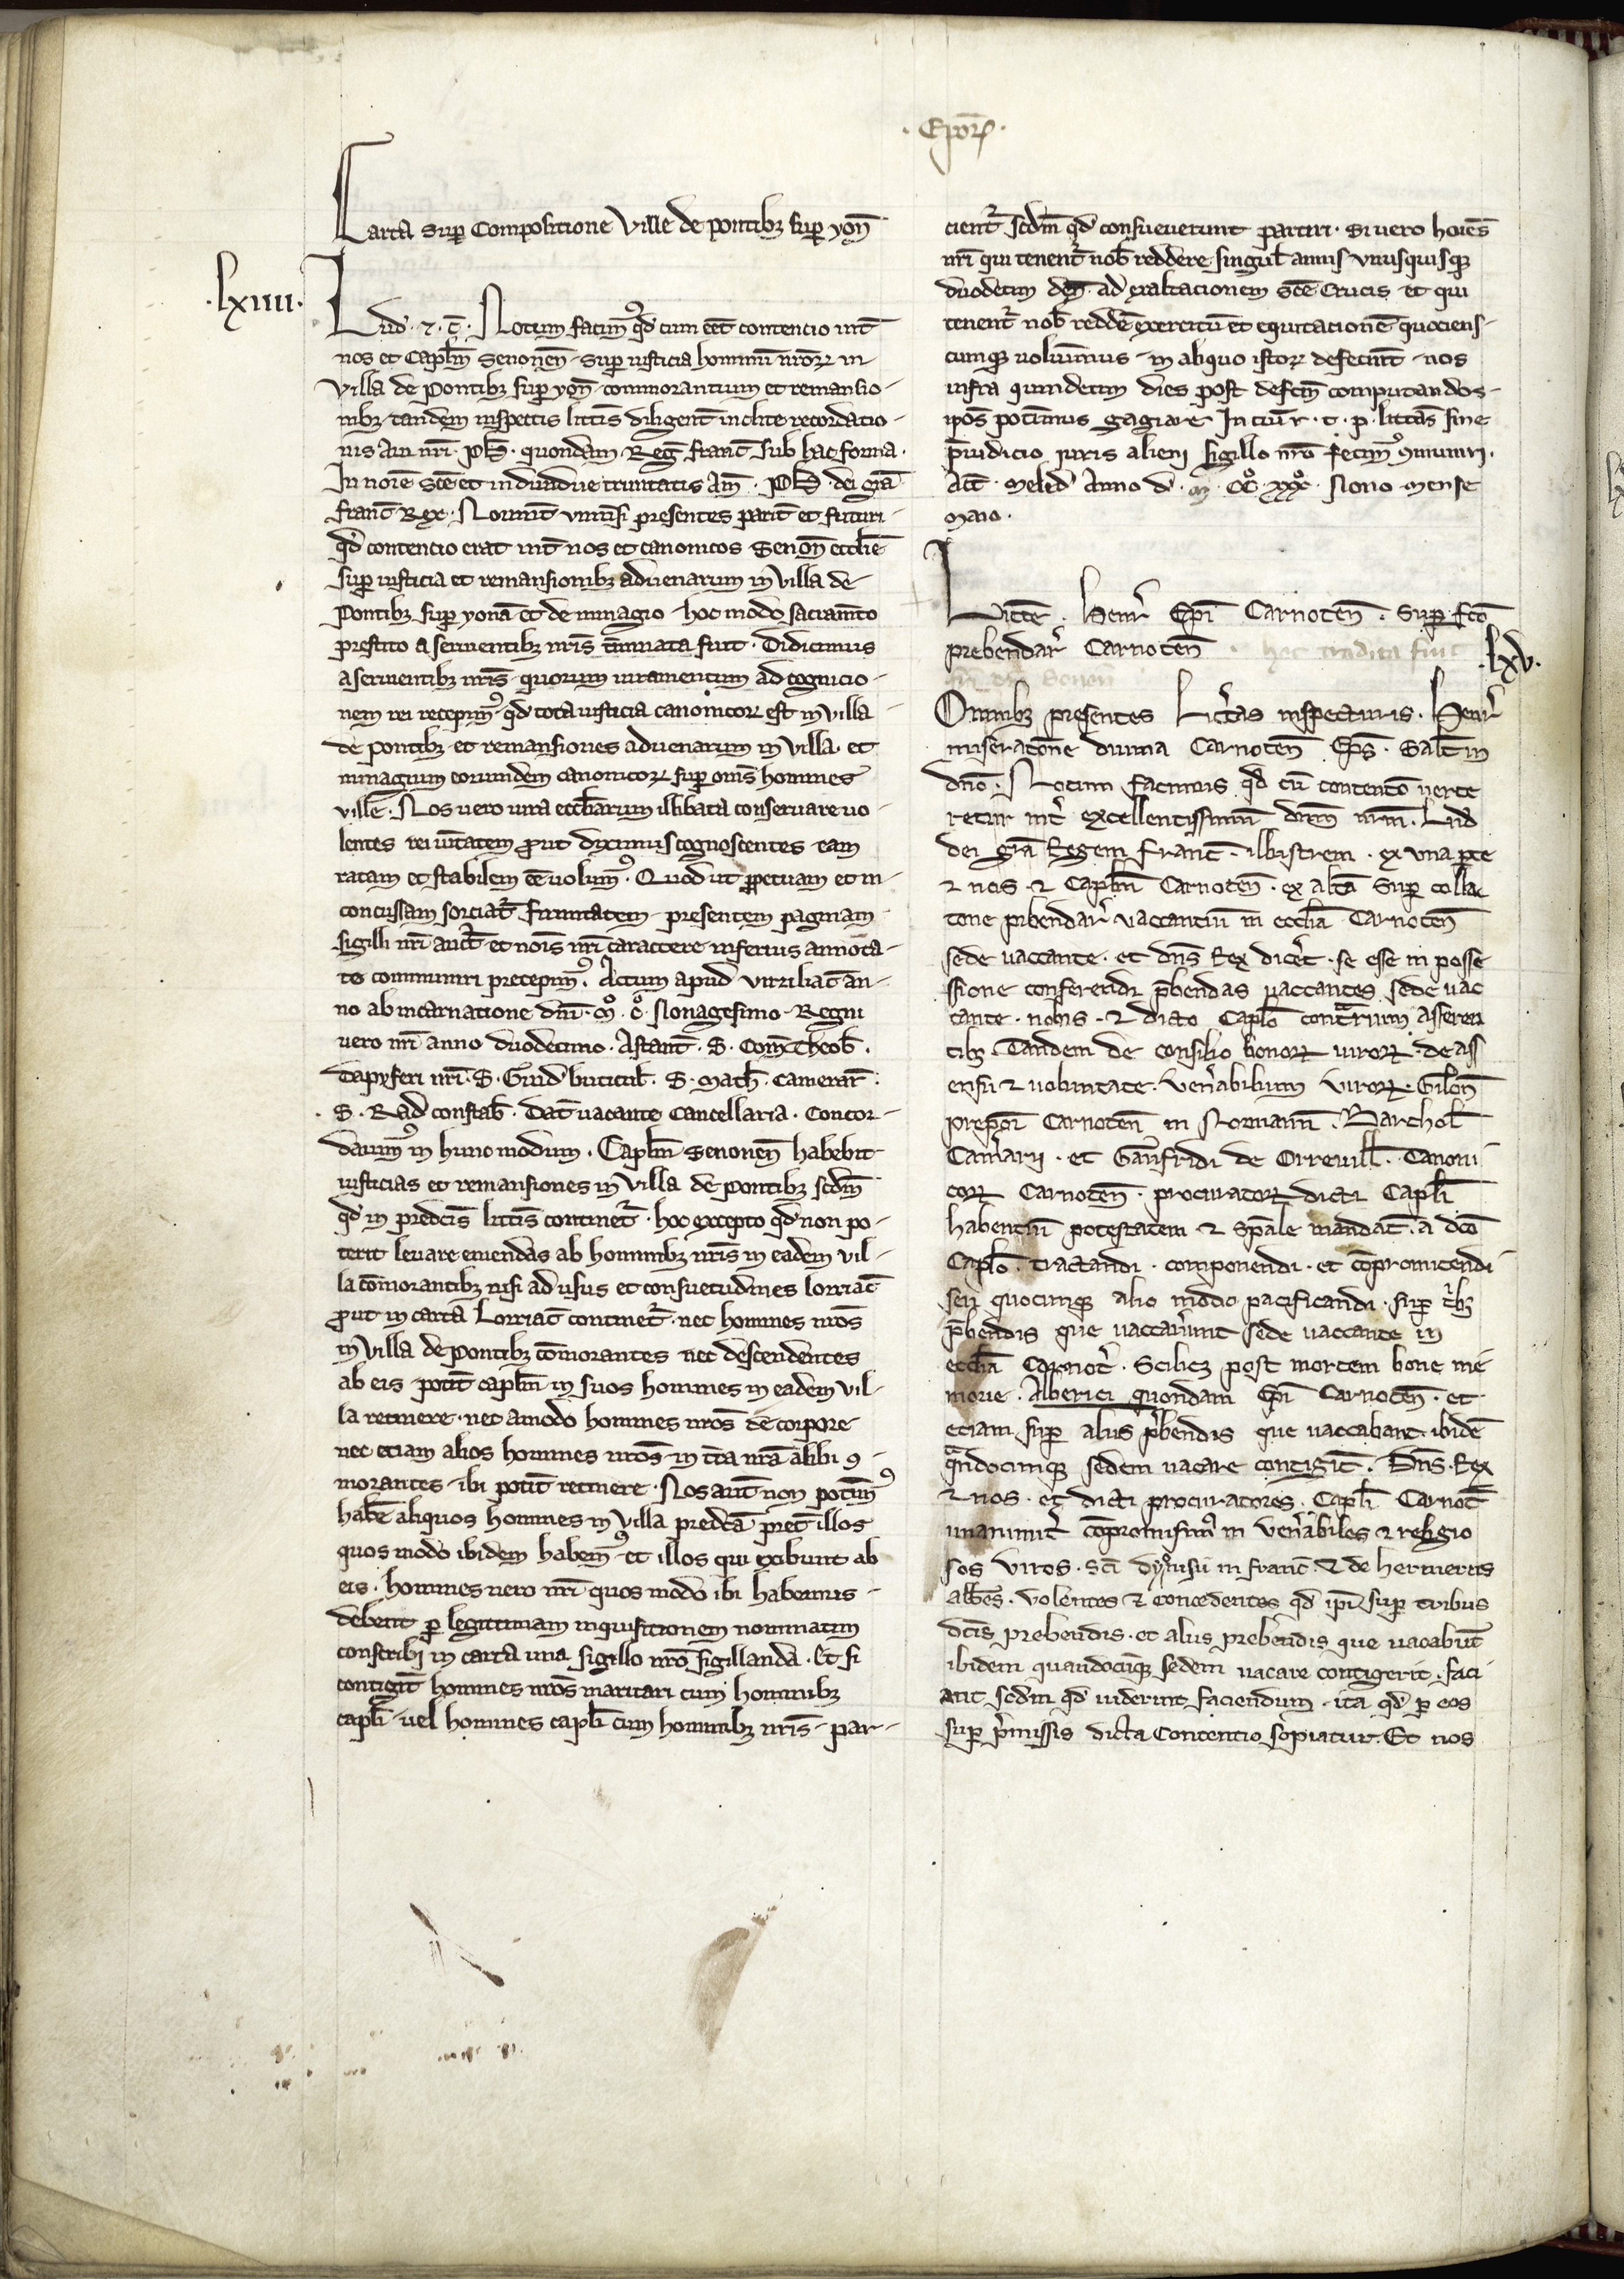 · Epor̃ ·
Carta sup̲ Compositione Ville de pontibꝫ sup̲ yon̄
·lxiiii·
Lud̃ · ⁊ · c̃ · Notum facim⁹ qd̃ cum eēt contencio int̃
nos et Capl̃m Senonen̄ · sup̲ iusticia hominū nr̄oꝝ in
Villa de Pontibꝫ sup̲ yon̄ · commorantium et remansio-
nibꝫ · tandem inspectis litt̃is diligent̃ inclite recordatio-
nis aui nr̃i · Ph̃ · quondam · Reg̃ franc̃ sub hac forma ·
In noīe sc̄e et indiuidue trinitatis Am̄ · Ph̃ · dei gr̃a
franc̃ Rex · Nouīnt vniūsi presentes parit̃ et futuri ·
qd̃ contencio erat int̃ nos et canonicos Senon̄ eccl̃ie
sup̲ iusticia et remansionibꝫ aduenarum in villa de
Pontibꝫ sup̲ yonā et de minagio · hoc modo sacram̄to
prestito a seruientibꝫ nr̃is t̃minata fuit · Didicimus
a seruientibꝫ nr̃is · quorum iuramentum ad cognicio-
nem rei recepim⁹ · qd̃ tota iusticia canonicoꝝ est in villa
de pontibꝫ · et remansiones aduenarum in villa · et
minagium eorundem canonicoꝝ sup̲ om̄s homines
ville · Nos uero iura eccl̃iarum illibata conseruare uo-
lentes rei uītatem ꝓut diximus cognoscentes · eam
ratam et stabilem eē uolum⁹ · Quod ut ꝑpetuam et in-
concussam sorciat̃ firmitatem · presentem paginam
sigilli nr̃i auct̃ et noīs nr̃i caractere inferius annota-
to communiri precepim⁹ · Actum apud vitriliac̃ an-
no ab incarnatione dn̄i · mͦ · cͦ · Nonagesimo · Regni
uero nr̃i anno duodecimo · Astant̃ · S · Com̃ Theob̃ ·
Dapiferi nr̃i · S · Guid̃ buticul̃ · S · Math̃ · Camerar̃ ·
S · Rad̃ constab̃ · Dat̃ uacante Cancellaria · Concor-
dauim⁹ in hunc modum · Capl̃m Senonen̄ habebit
iusticias et remansiones in villa de pontibꝫ scd̃m
qd̃ in predc̃is litt̃is continet̃ · hoc excepto qd̃ non po-
terit leuare emendas ab hominibꝫ nr̃is in eadem vil-
la cōmorantibꝫ nisi ad usus et consuetudines lorriac̃
ꝓut in carta Lorriac̃ continet̃ · nec homines nr̃os
in villa de pontibꝫ cōmorantes nec descendentes
ab eis · potīt capl̃m in suos homines in eadem vil-
la retinere · nec amodo homines nr̃os de corpore
nec etiam alios homines nr̃os · in t̃ra nr̃a alibi ꝯ-
morantes · ibi potīt retinere · Nos aut̃ non potim⁹
habē aliquos homines in villa predc̃a pret̃ illos
quos modo ibidem habem⁹ · et illos qui exibunt ab
eis · homines uero nr̃i quos modo ibi habemus ·
debent ꝑ legittimam inquisitionem nominatim
conscribi in carta una sigillo nr̃o sigillanda · Et si
contigīt homines nr̃os maritari cum hominibꝫ
capl̃i · uel homines capl̃i cum hominibꝫ nr̃is · par-
cient̃ scd̃m qd̃ consueuerunt partiri · Si uero hoīes
nr̃i qui tenent̃ nob̃ reddere singul̃ annis vnusquisqꝫ
duodecim den̄ · ad exaltacionem Sc̄e Crucis · et qui
tenent̃ nob̃ reddē exercitū et equitacionē quociens-
cumqꝫ uoluīmus · in aliquo istoꝝ defecīnt · nos
infra quindecim dies post defc̃m computandos ·
ip̄os potīmus gagiare In cui⁹ r · t · p · litt̃as sine
p̄iudicio iuris alieni sigillo nr̃o fecim⁹ ꝯmuniri ·
Act̃ · Meled̃ Anno d̃ · mͦ · ccͦ · xxxͦ · Nono Mense
Maio ·
Litt̃e · Henr̃ Ep̄i Carnoten̄ · sup̲ fc̃o
prebendar̃ Carnoten̄ · hec tradita fuit
·lxv·
Omnibꝫ presentes Litt̃as inspecturis · Henr̃
miseratōne diuina Carnoten̄ Ep̄s · Salt̃m in
dn̄o · Notum facimus qd̃ cū contentō uerte
retur int̃ excellentissimū dn̄m nr̃m · Lud̃
dei gr̃a Regem Franc̃ · illustrem · ex una ꝑte
⁊ nos · ⁊ Capl̃m Carnoten̄ · ex alt̃a sup̲ colla
tione p̄bendar̃ vaccantiū in eccl̃ia Carnoten̄
sede uaccante · et dn̄s Rex dic̃et · se esse in posse
ssione conferendi p̄bendas uaccantes sede uac
cante · nobis · ⁊ dicto Capl̃o contrarium asseren
tibꝫ · Tandem de consilio bonoꝝ uiroꝝ · de ass
ensu ⁊ uoluntate · Ven̄abilium viroꝝ · Gilon̄
prepōi Carnoten̄ in Normann̄ · Barthol̃
Cam̃arii · et Gaufridi de Orreuill̃ · Canoni
coꝝ Carnoten̄ · procuratoꝝ dicti Capl̃i
habentiū potestatem ⁊ sp̄ale mandat̃ · a dc̃o
Capl̃o · tractandi · componendi · et cōpromittendi
seu quocumqꝫ alio modo pacificandi · sup̲ t̃bꝫ
p̄bendis que vaccauīunt sede uaccante in
eccl̃ia Carnot̃ · Scilicꝫ post mortem bone me
morie · Alberici quondam Ep̄i Carnoten̄ · et
etiam sup̲ aliis p̄bendis que uaccabant · ibidē
qandocumqꝫ sedem uacare contigīt · Dn̄s · Rex
⁊ nos · et dicti procuratores · Capl̃i Carnot̃
unanimit̃ cōpromisim⁹ in Ven̄abiles ⁊ religio
sos viros · sc̃i dyonisii in franc̃ · ⁊ de hermeriis
abb̃es · volentes ⁊ concedentes qd̃ ip̄i sup̲ tribus
dc̃is prebendis · et aliis prebendis que uacabūt
ibidem quandocūqꝫ sedem uacare contigerit · faci
ant scd̃m qd̃ uiderint faciendum · ita qd̃ ꝑ eos
sup̲ p̄missis dicta Contentio sopiatur · Et nos